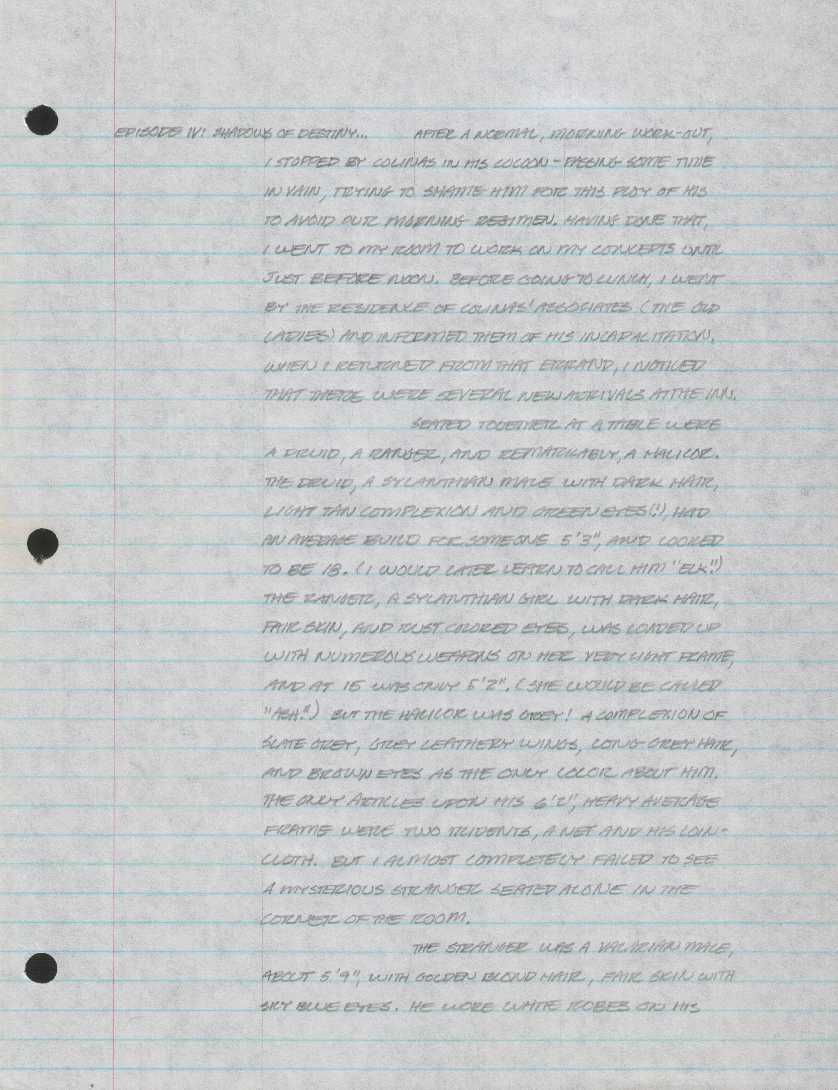 EPISODE IV: SHADOWS OF DESTINY... AFTER A NORMAL, MORNING WORK-OUT,
I STOPPED BY COLINAS IN HIS COCOON - PASSING SOME TIME
IN VAIN, TRYING TO SHAME HIM FOR THIS PLOY OF HIS
TO AVOID OUR MORNING REGIMEN. HAVING DONE THAT,
I WENT TO MY ROOM TO WORK ON MY CONCEPTS UNTIL
JUST BEFORE NOON. BEFORE GOING TO LUNCH, I WENT
BY THE RESIDENCE OF COLINAS' ASSOCIATES (THE OLD
LADIES) AND INFORMED THEM OF HIS INCAPACITATION.
WHEN I RETURNED FROM THAT ERRAND, I NOTICED
THAT THERE WERE SEVERAL NEW ARRIVALS AT THE INN.
SEATED TOGETHER AT A TABLE WERE
A DRUID, A RANGER, AND REMARKABLY, A HALICOR.
THE DRUID, A SYLANTHIAN MALE WITH DARK HAIR,
LIGHT TAN COMPLEXION AND GREEN EYES(!), HAD
AN AVERAGE BUILD FOR SOMEONE 5'3", AND LOOKED
TO BE 18. (I WOULD LATER LEARN TO CALL HIM "ELK".)
THE RANGER, A SYLANTHIAN GIRL WITH DARK HAIR,
FAIR SKIN, AND RUST COLORED EYES, WAS LOADED UP
WITH NUMEROUS WEAPONS ON HER VERY LIGHT FRAME,
AND AT 15 WAS ONLY 5'2". (SHE WOULD BE CALLED
"ASH".) BUT THE HALICOR WAS GREY! A COMPLEXION OF
SLATE GREY, GREY LEATHERY WINGS, LONG GREY HAIR,
AND BROWN EYES AS THE ONLY COLOR ABOUT HIM.
THE ONLY ARTICLES UPON HIS 6'2", HEAVY AVERAGE
FRAME WERE TWO TRIDENTS, A NET AND HIS LOIN-
CLOTH. BUT I ALMOST COMPLETELY FAILED TO SEE
A MYSTERIOUS STRANGER SEATED ALONE IN THE
CORNER OF THE ROOM.
THE STRANGER WAS A VALARIAN MALE,
ABOUT 5'9", WITH GOLDEN BLOND HAIR, FAIR SKIN WITH
SKY BLUE EYES. HE WORE WHITE ROBES ON HIS